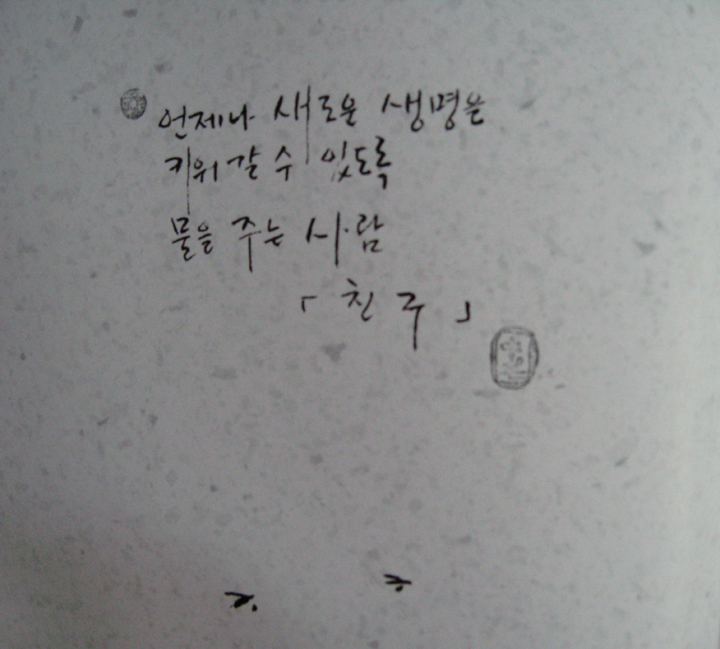 언제나 새로운 생명을
키워갈 수 있도록
물을 주는 사람
「친구」